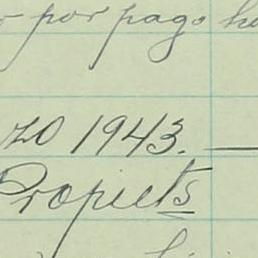 por pago
zo 1943. —
Propiets